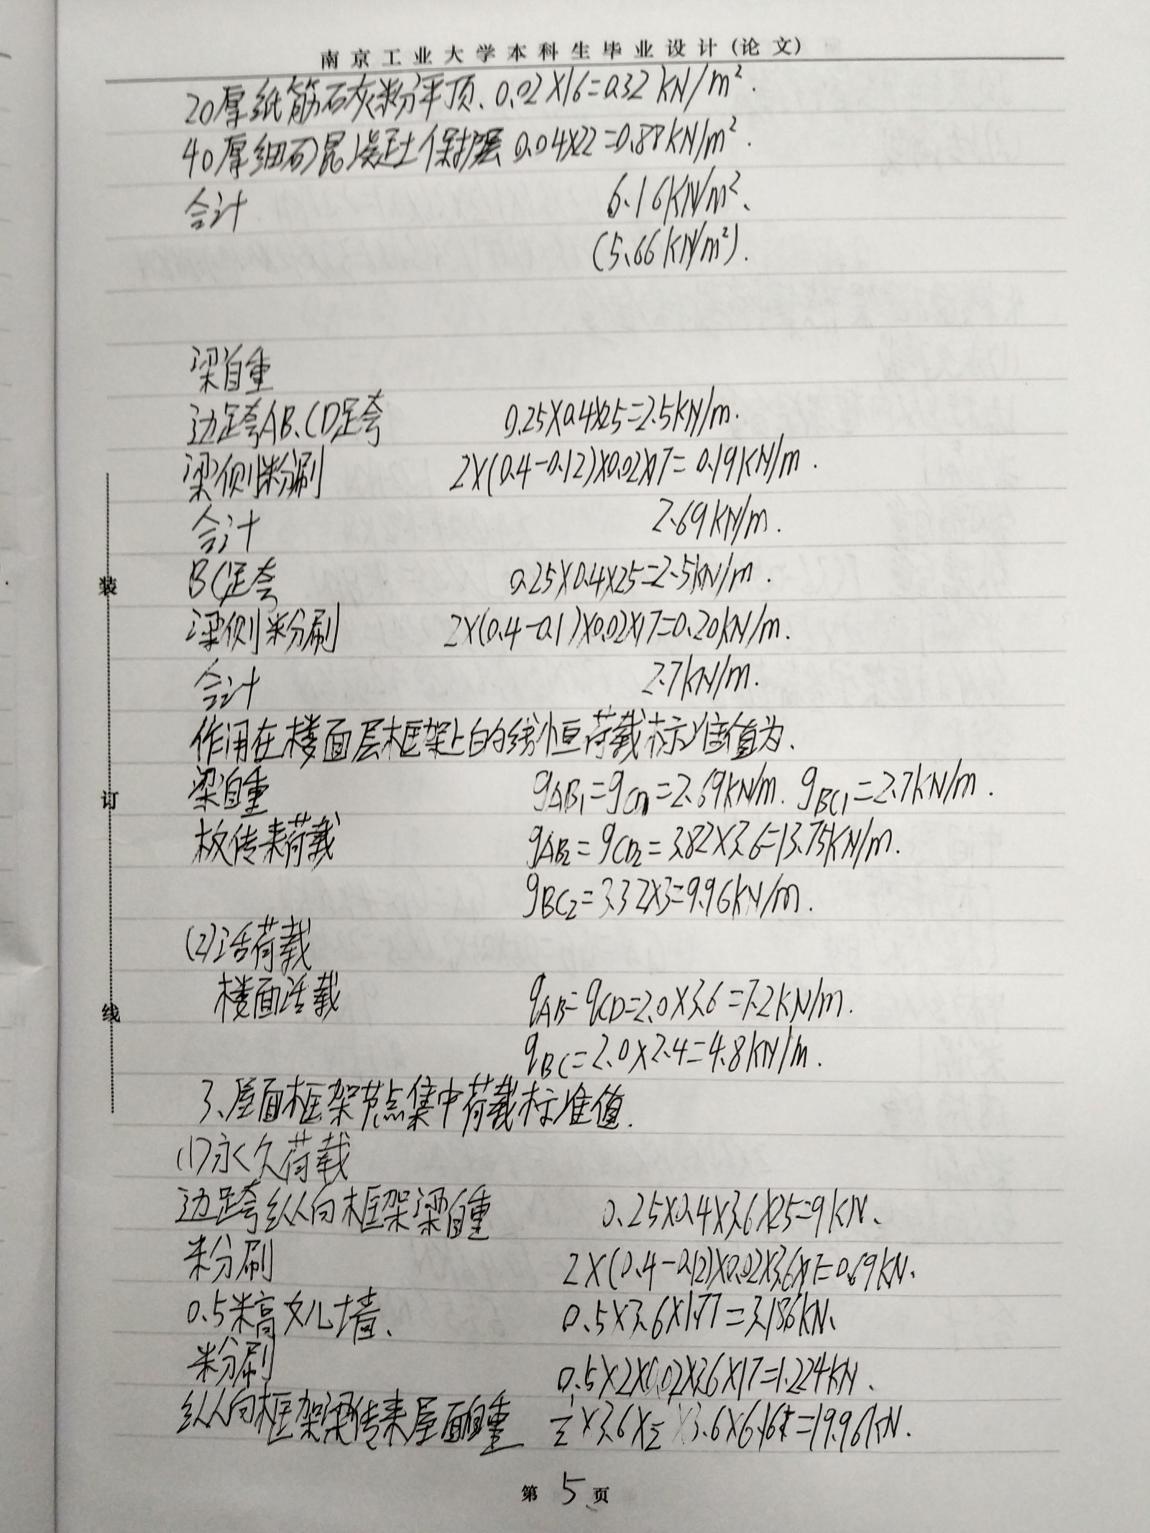 南京工业大学本科生毕业设计(论文)
20厚纸筋石灰粉平顶、0.02×16=0.32KN/m².
40厚细石混凝土保护层 0.04×22=0.88KN/m².
合计 6.16KN/m²、
(5.66KN/m²).
梁自重
边跨AB、CD跨 0.25×0.4×25=2.5KN/m.
梁侧粉刷 2×(0.4-0.12)×0.02×17=0.19KN/m.
合计 2.69KN/m.
BC跨 0.25×0.4×25=2.5KN/m.
梁侧粉刷 2×(0.4-0.1)×0.02×17=0.20KN/m.
合计 2.7KN/m.
作用在楼面层框架上的线恒荷载标准值为、
梁自重 gAB₁=gCD₁=2.69KN/m. gBC₁=2.7KN/m.
板传来荷载 gAB₂=gCD₂=3.82×3.6=13.75KN/m.
gBC₂=3.32×3=9.96KN/m.
(2)活荷载
楼面活载 qAB=qCD=2.0×3.6=7.2KN/m.
qBC=2.0×2.4=4.8KN/m.
3、屋面框架节点集中荷载标准值.
(1)永久荷载
边跨纵向框架梁自重 0.25×0.4×3.6×25=9KN、
粉刷 2×(0.4-0.12)×0.02×3.6×17=0.69KN、
0.5米高女儿墙、 0.5×3.6×1.77=3.186KN、
粉刷 0.5×2×0.02×3.6×17=1.224KN、
纵向框架梁传来屋面自重 ½×3.6×½×3.6×6.16=19.96KN.
第 5 页
装
订
线